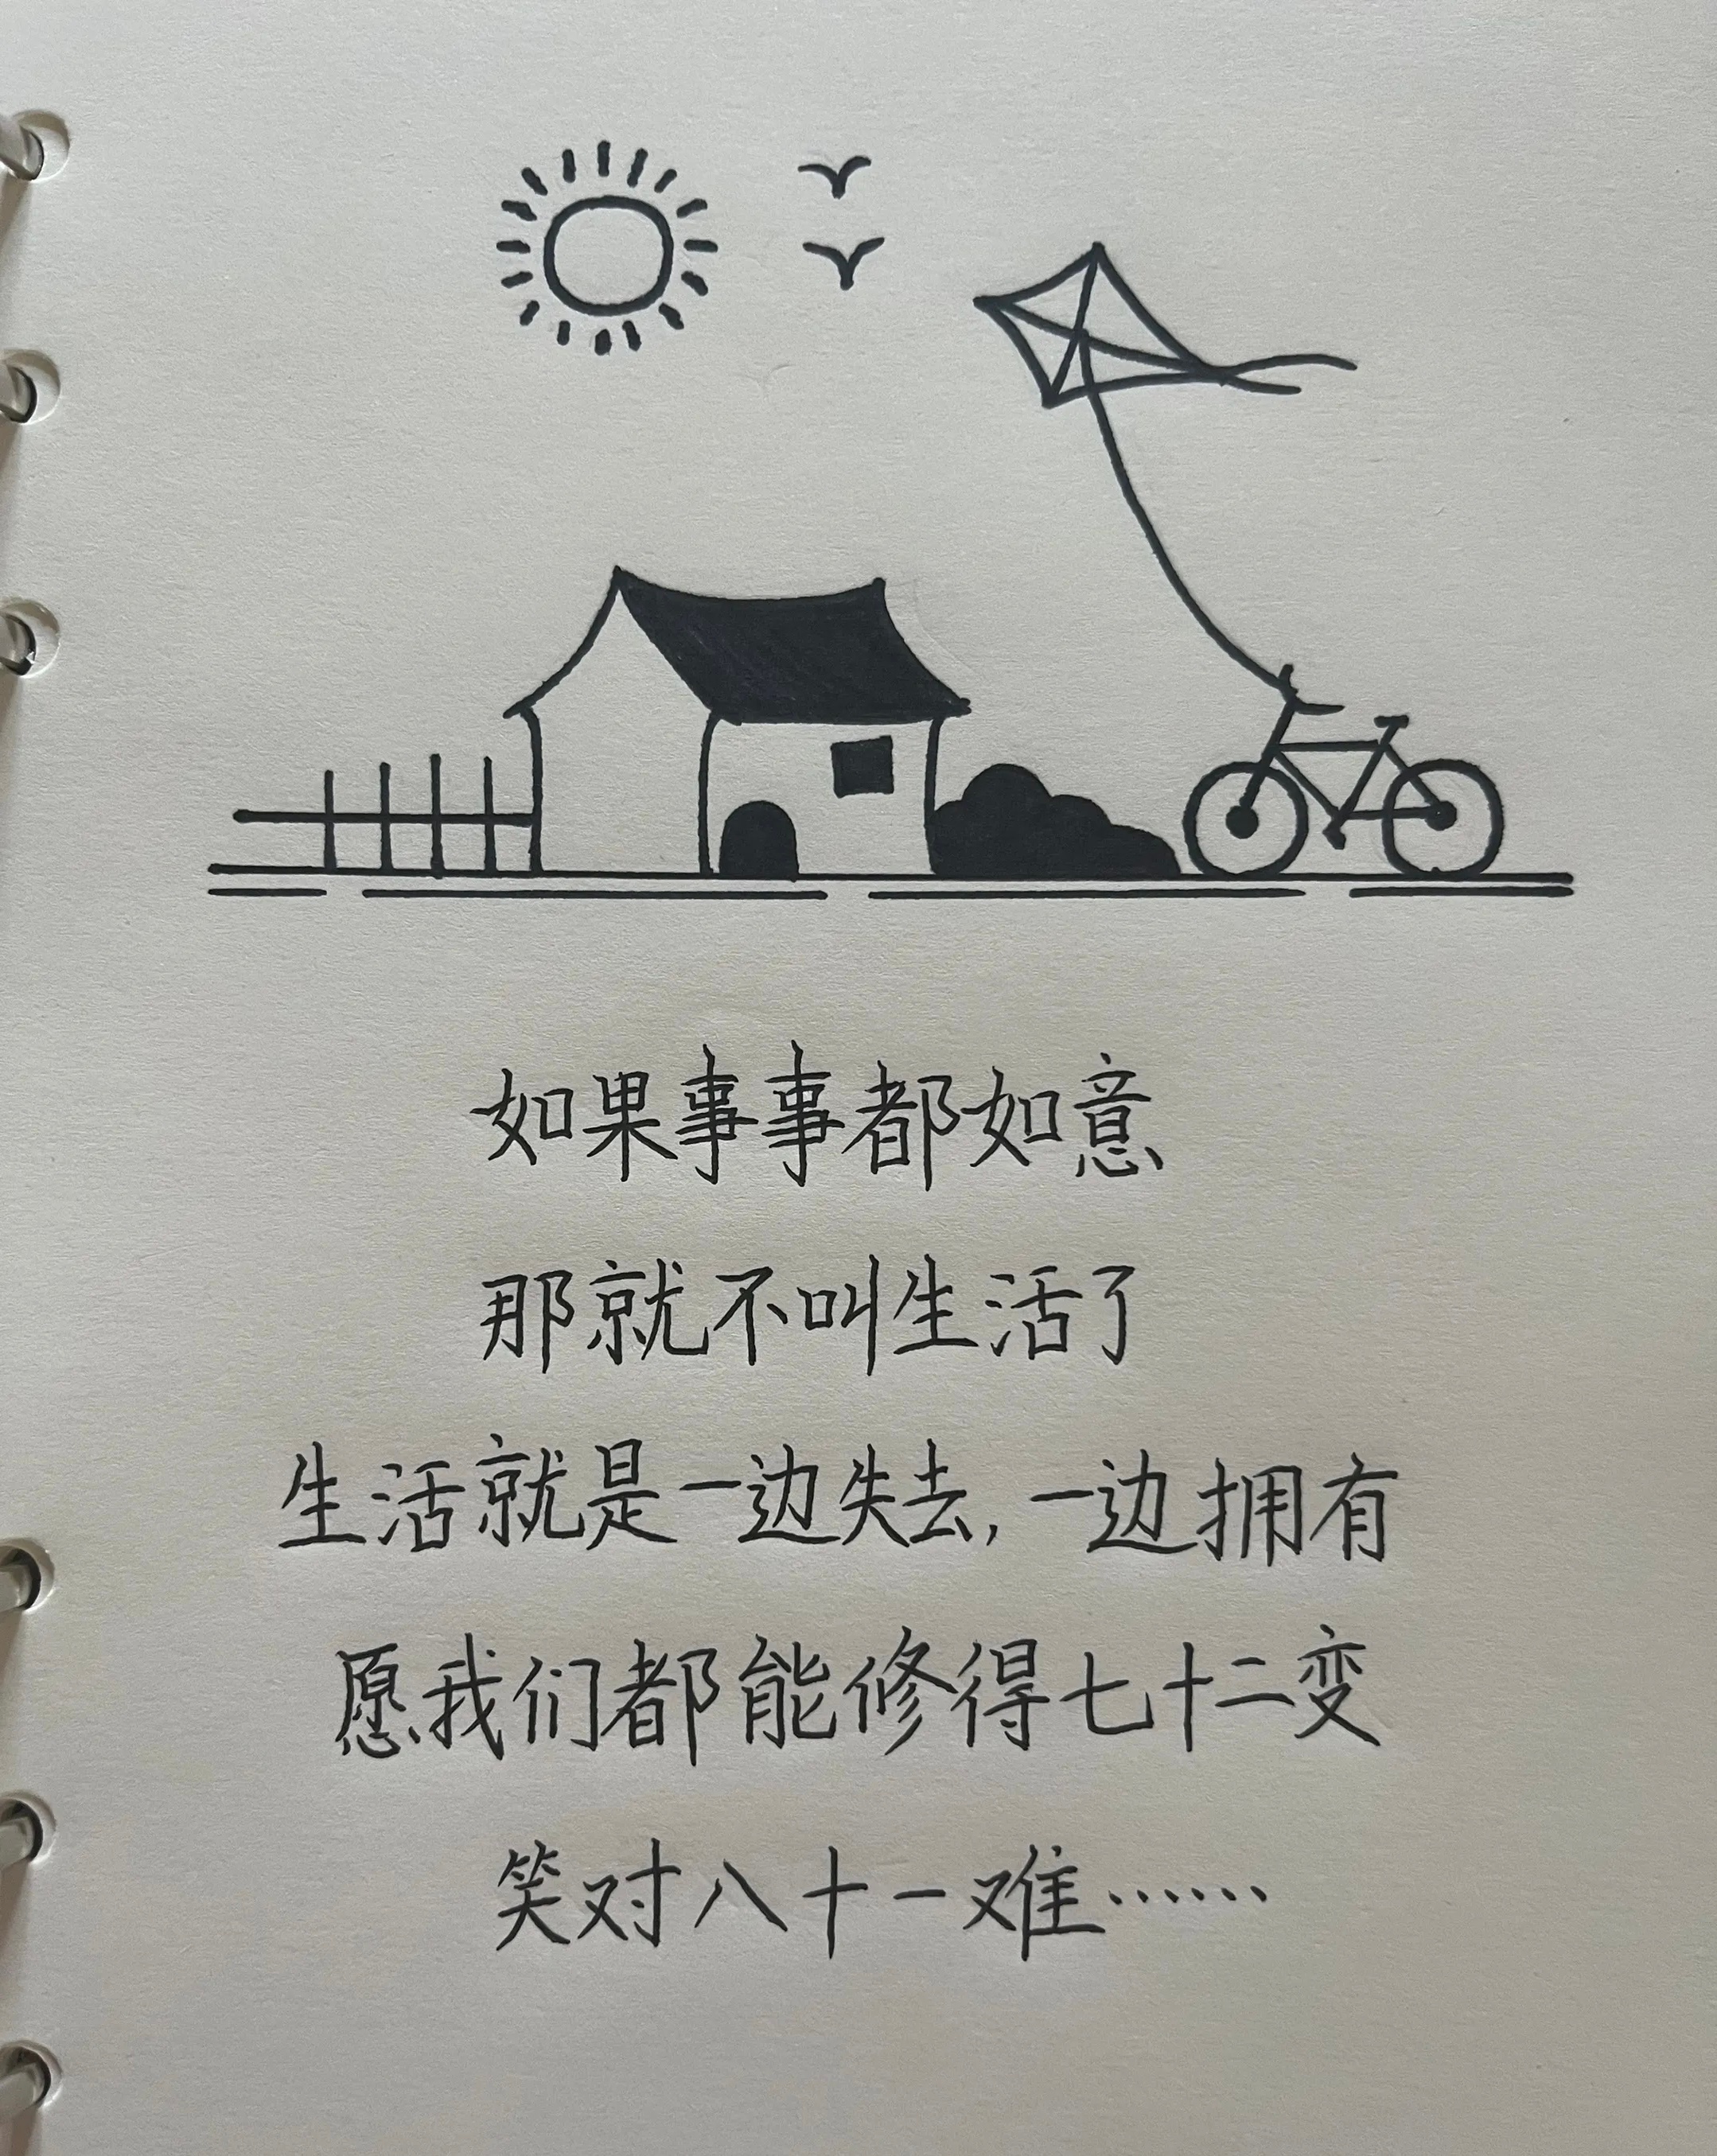 如果事事都如意
那就不叫生活了
生活就是一边失去,一边拥有
愿我们都能修得七十二变
笑对八十一难……